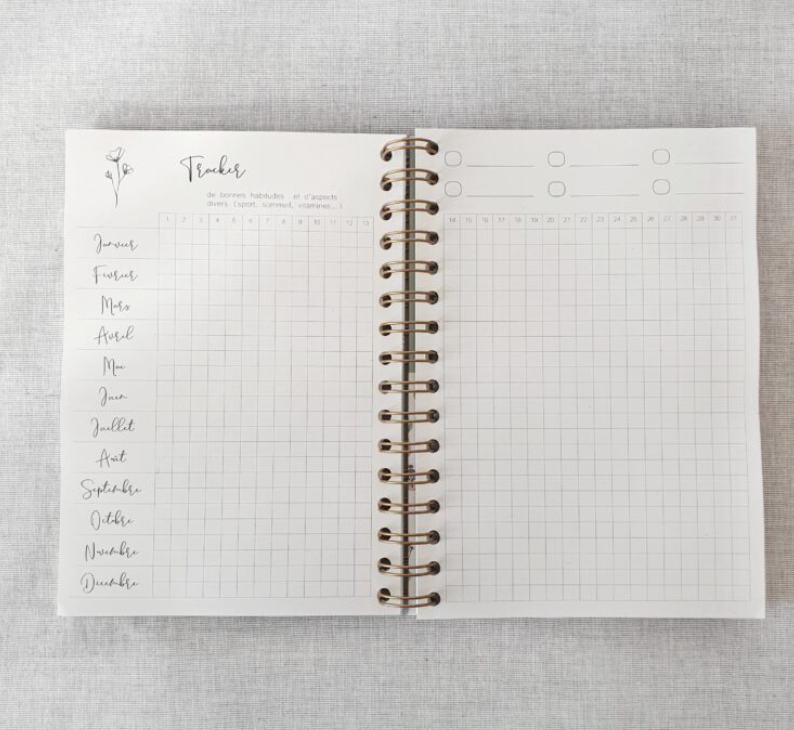 Tracker
de bonnes habitudes et d'aspects
divers (sport, sommeil, vitamines...)
1 2 3 4 5 6 7 8 9 10 11 12 13
14 15 16 17 18 19 20 21 22 23 24 25 26 27 28 29 30 31
Janvier
Février
Mars
Avril
Mai
Juin
Juillet
Août
Septembre
Octobre
Novembre
Décembre